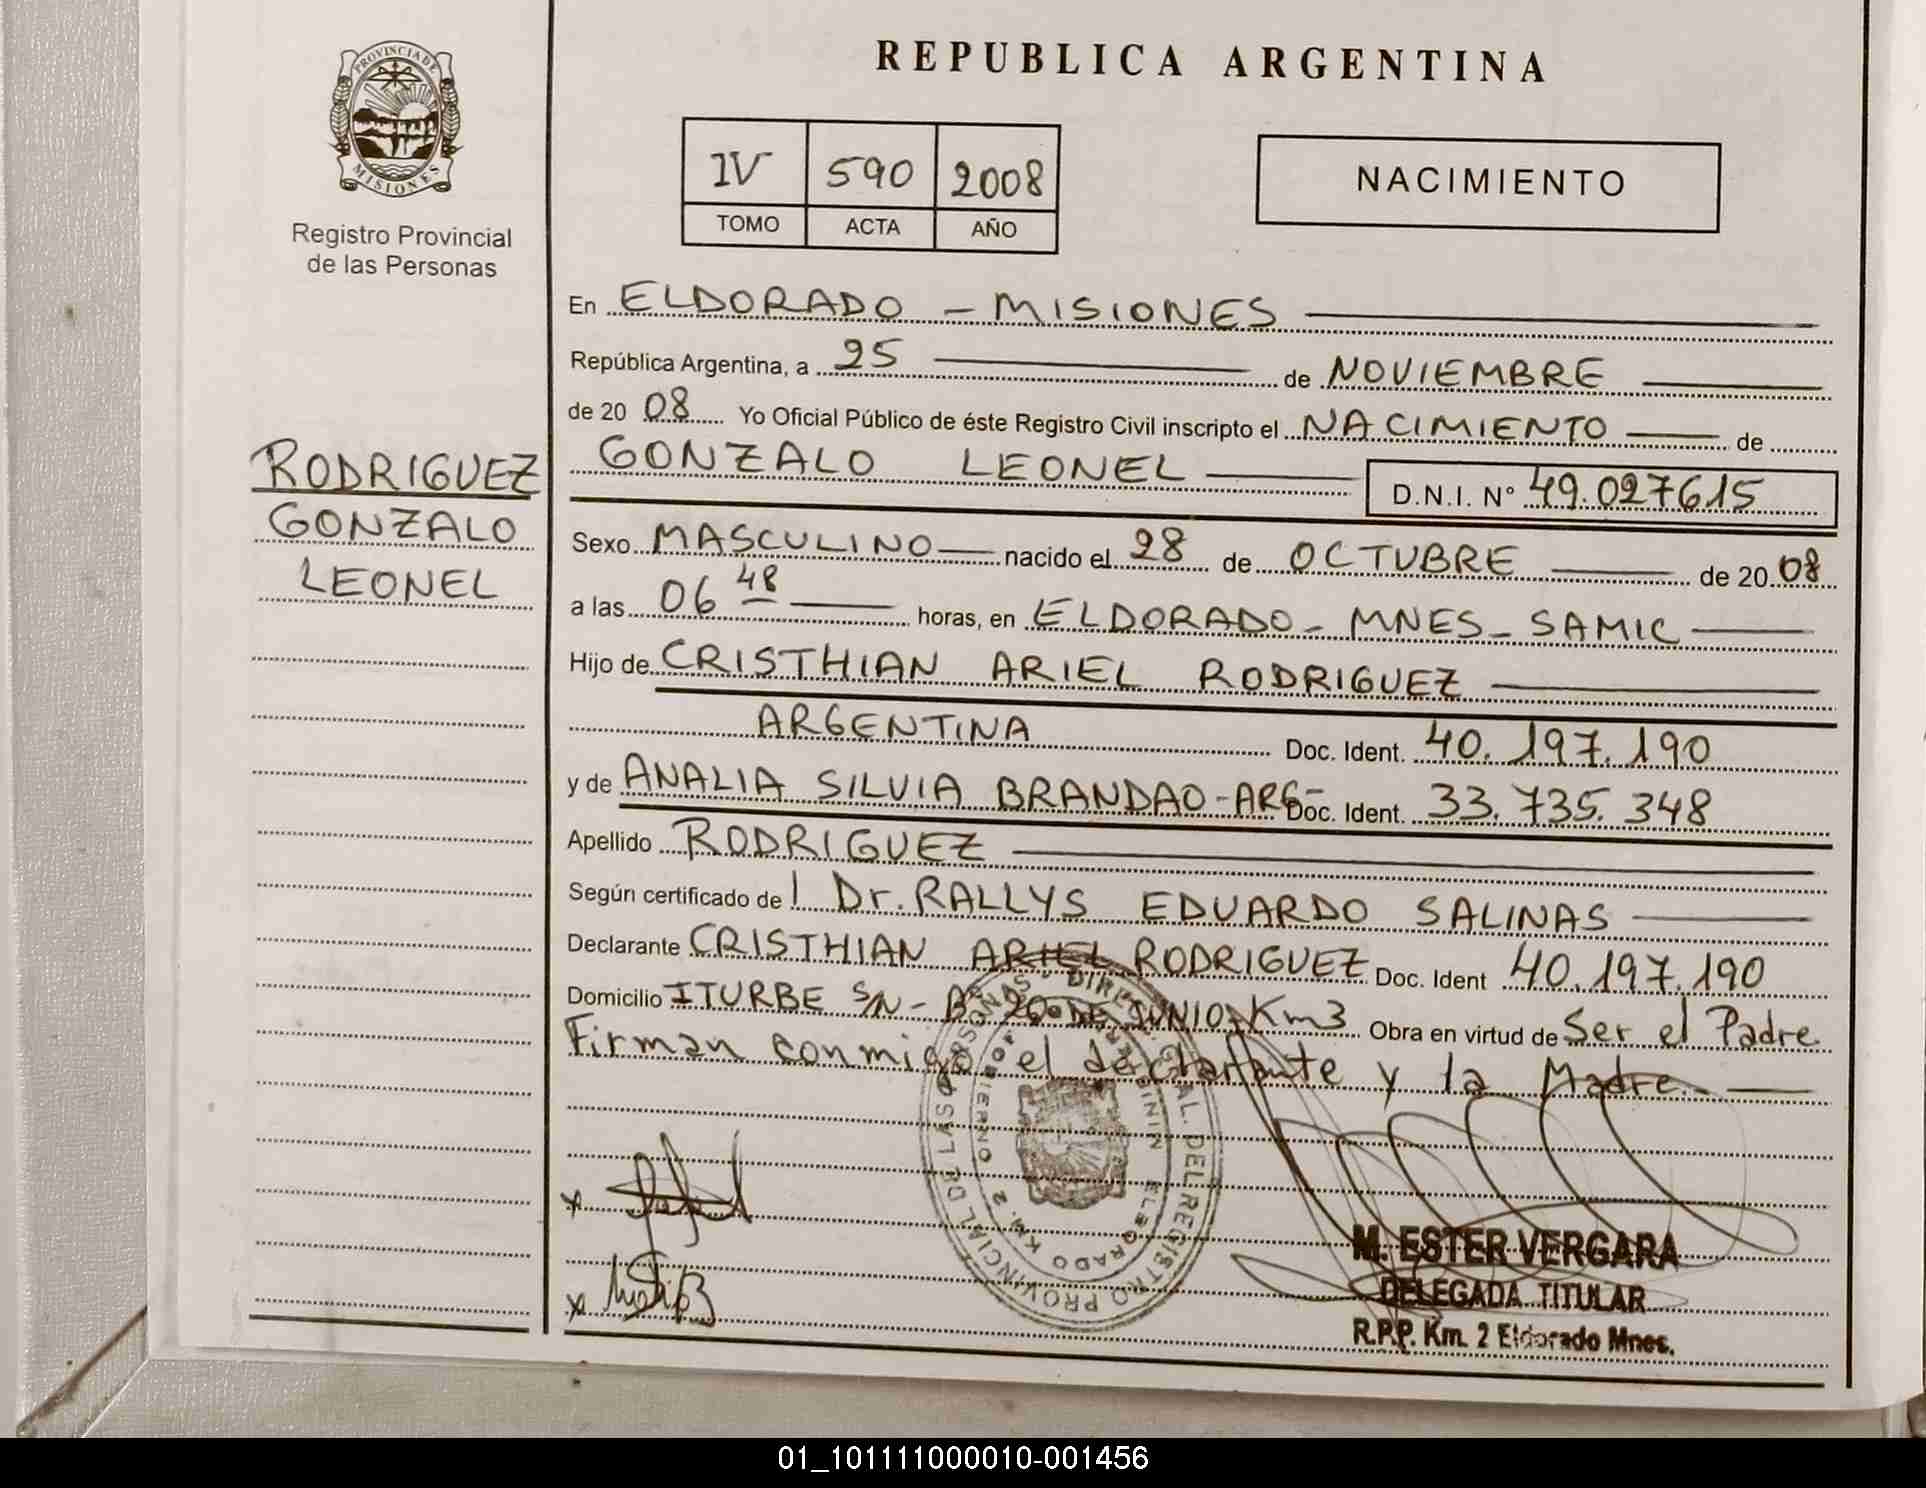 PROVINCIA DE
MISIONES
Registro Provincial
de las Personas
RODRIGUEZ
GONZALO
LEONEL
REPUBLICA ARGENTINA
IV 590 2008
TOMO ACTA AÑO
NACIMIENTO
En ELDORADO - MISIONES
República Argentina, a 25 de NOVIEMBRE
de 20 08 Yo Oficial Público de éste Registro Civil inscripto el NACIMIENTO de
GONZALO LEONEL D.N.I. N° 49.027615
Sexo MASCULINO nacido el 28 de OCTUBRE de 20 08
a las 06 48 horas, en ELDORADO - MNES - SAMIC
Hijo de CRISTHIAN ARIEL RODRIGUEZ
ARGENTINA Doc. Ident. 40.197.190
y de ANALIA SILVIA BRANDAO - ARG- Doc. Ident. 33.735.348
Apellido RODRIGUEZ
Según certificado de l Dr. RALLYS EDUARDO SALINAS
Declarante CRISTHIAN ARIEL RODRIGUEZ Doc. Ident 40.197.190
Domicilio ITURBE S/N - B° 20 DE JUNIO Km3 Obra en virtud de Ser el Padre
Firman conmigo el declarante y la Madre.
DEL REGISTRO PROVINCIAL DE LAS PERSONAS
ELDORADO KM. 2
M. ESTER VERGARA
DELEGADA TITULAR
R.P.P. Km. 2 Eldorado Mnes.
01_101111000010-001456